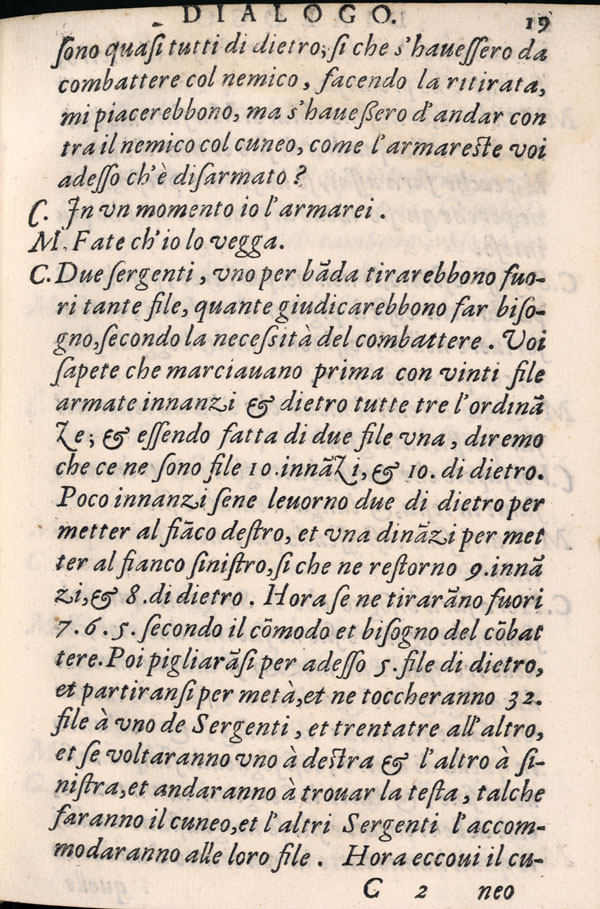 DIALOGO. 19
sono quasi tutti di dietro, si che s'hauessero da
combattere col nemico, facendo la ritirata,
mi piacerebbono, ma s'haueßero d'andar con
tra il nemico col cuneo, come l'armareste voi
adesso ch'è disarmato?
C. In vn momento io l'armarei.
M. Fate ch'io lo vegga.
C. Due sergenti, vno per bãda tirarebbono fuo-
ri tante file, quante giudicarebbono far biso-
gno, secondo la necessità del combattere. Voi
sapete che marciauano prima con vinti file
armate innanzi & dietro tutte tre l'ordinã
ze; & essendo fatta di due file vna, diremo
che ce ne sono file 10. innãzi, & 10. di dietro.
Poco innanzi sene leuorno due di dietro per
metter al fiãco destro, et vna dinãzi per met
ter al fianco sinistro, si che ne restorno 9. innã
zi, & 8. di dietro. Hora se ne tirarãno fuori
7. 6. 5. secondo il cõmodo et bisogno del cõbat
tere. Poi pigliarãsi per adesso 5. file di dietro,
et partiransi per metà, et ne toccheranno 32.
file à vno de Sergenti, et trentatre all'altro,
et se voltaranno vno à destra & l'altro à si-
nistra, et andaranno à trouar la testa, talche
faranno il cuneo, et l'altri Sergenti l'accom-
modaranno alle loro file. Hora eccoui il cu-
C 2 neo